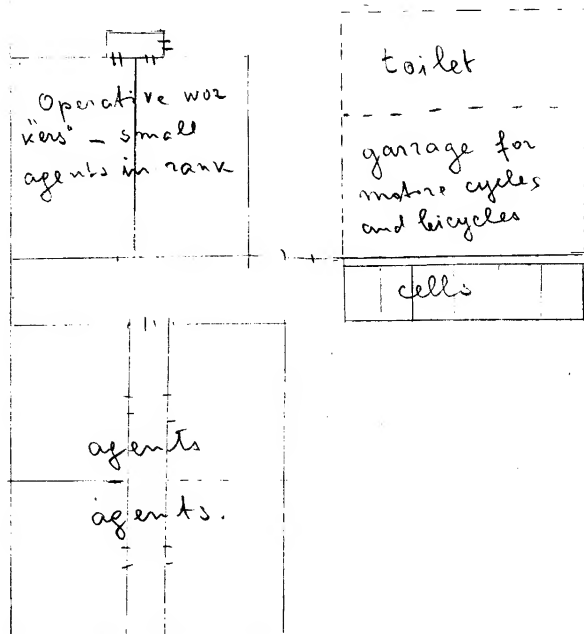 Operative wor
"kers" – small
agents in rank
toilet
garrage for
motore cycles
and bicycles
cells
agents
agents.